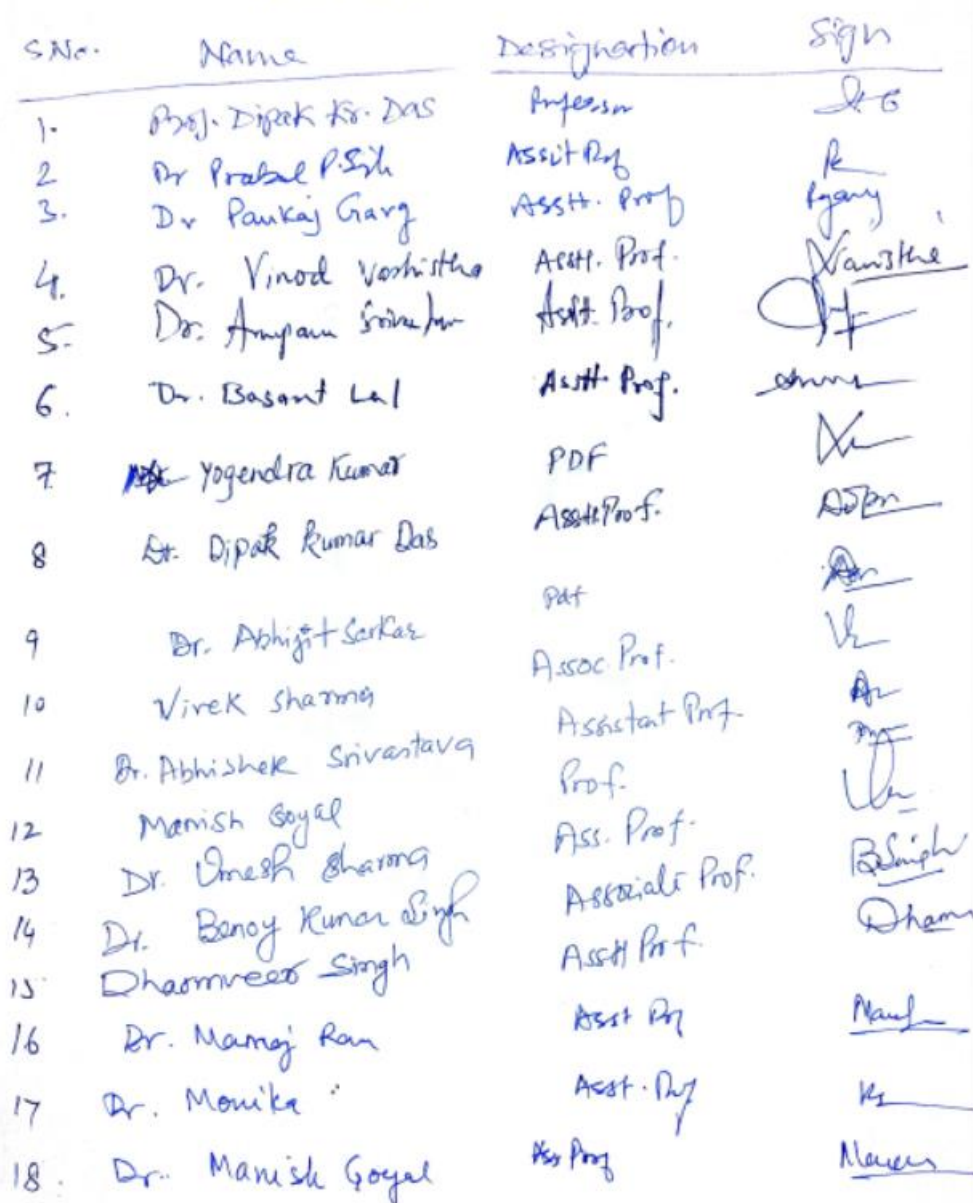 S.No. Name Designation Sign
1. Prof. Dipak Kr. Das Professor
2 Dr Prabal P. Asstt Prof
3. Dr Pankaj Garg Asstt. Prof Pgarg
4. Dr. Vinod Vashistha Asstt. Prof. Vasistha
5. Dr. Anupam Srivastav Asstt. Prof.
6. Dr. Basant Lal Asstt. Prof.
7 Yogendra Kumar PDF
8 Dr. Dipak Kumar Das Asstt Prof.
9 Dr. Abhijit Sarkar Pdf
10 Vivek Sharma Assoc. Prof.
11 Dr. Abhishek Srivastava Assistant Prof.
12 Manish Goyal Prof.
13 Dr. Umesh Sharma Ass. Prof.
14 Dr. Benoy Kumar Singh Associate Prof. BSingh
15 Dharmveer Singh Asstt Prof. Dharm
16 Dr. Manoj Ram Asst Prof
17 Dr. Monika Asst. Prof
18. Dr. Manish Goyal Ass Prof